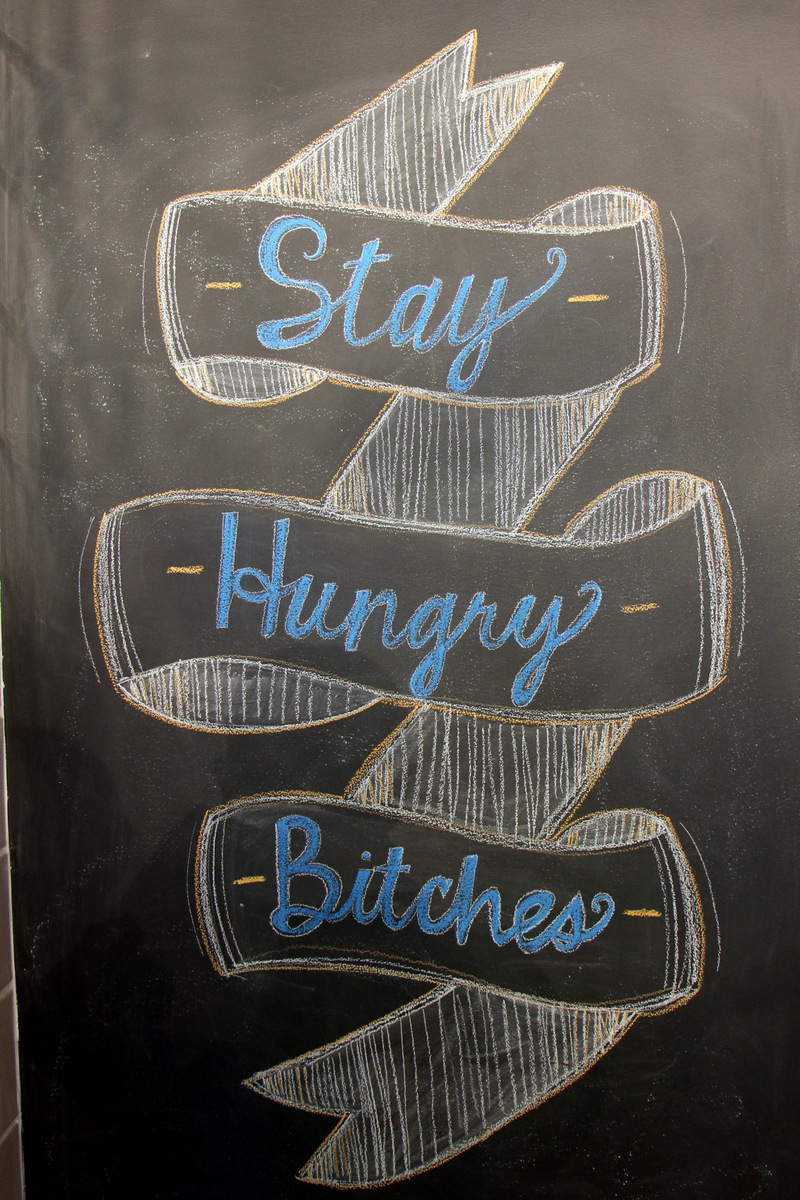 - Stay -
- Hungry -
- Bitches -